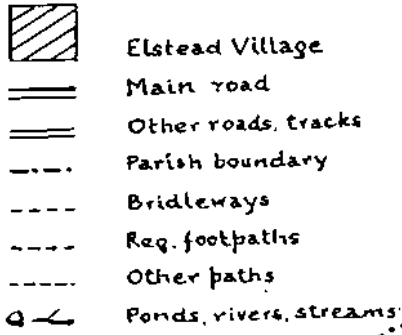 Elstead Village
Main road
Other roads, tracks
Parish boundary
Bridleways
Reg. footpaths
Other paths
Ponds, rivers, streams